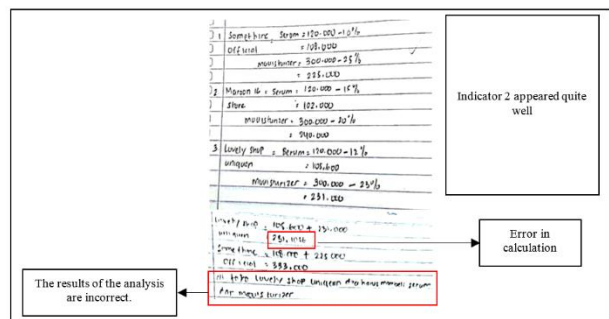 1 Somethinc Serum = 120.000 - 10%
Official = 108.000
Mouisturizer = 300.000 - 25%
= 225.000
2 Maroon 16 = Serum = 120.000 - 15%
Store = 102.000
Mouisturizer = 300.000 - 20%
= 240.000
3 Lovely Shop = Serum = 120.000 - 12%
uniquen = 105.600
Mouisturizer = 300.000 - 23%
= 231.000
Lovely Shop = 105.600 + 231.000
uniquen
Somethinc = 108.000 + 225.000
Official = 333.000
toko Lovely Shop uniquen serum
dan mouisturizer
Indicator 2 appeared quite
well
Error in
calculation
The results of the analysis
are incorrect.